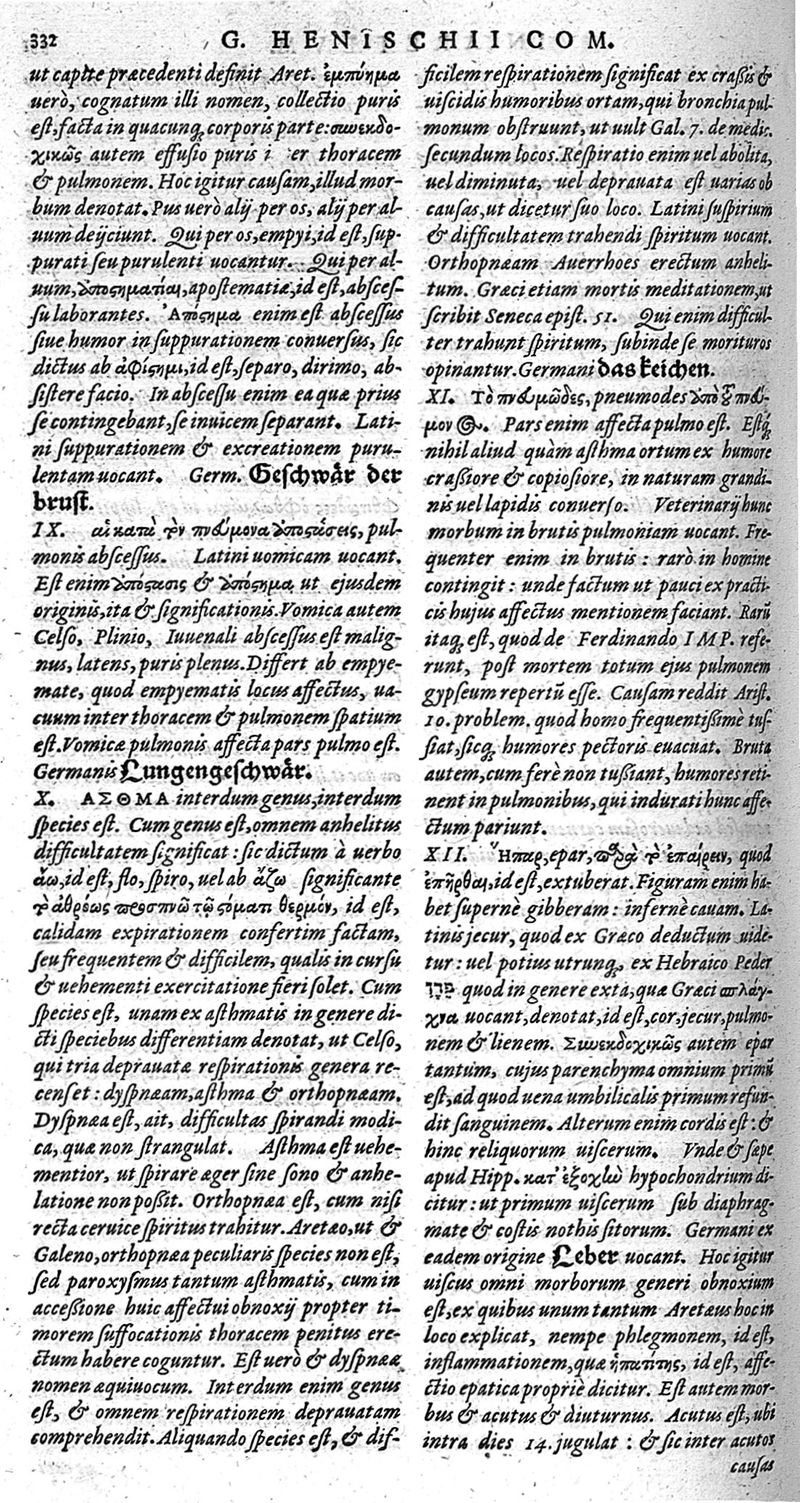 332 G. HENISCHII COM.
ut capite præcedenti definit Aret. ἐμπύημα
uerò, cognatum illi nomen, collectio puris
est, facta in quacunq; corporis parte: συνεκδο-
χικῶς autem effusio puris i er thoracem
& pulmonem. Hoc igitur causam, illud mor-
bum denotat. Pus uerò alij per os, alij per al-
uum deijciunt. Qui per os, empyi, id est, sup-
purati seu purulenti uocantur. Qui per al-
uum, ἀποστηματίαι, apostematiæ, id est, absces-
su laborantes. Ἀπόστημα enim est abscessus
siue humor in suppurationem conuersus, sic
dictus ab ἀφίστημι, id est, separo, dirimo, ab-
sistere facio. In abscessu enim ea quæ prius
se contingebant, se inuicem separant. Lati-
ni suppurationem & excreationem puru-
lentam uocant. Germ. Geschwår der
brust.
IX. αἱ κατὰ τὸν πνεύμονα ἀποστάσεις, pul-
monis abscessus. Latini uomicam uocant.
Est enim ἀπόστασις & ἀπόστημα ut ejusdem
originis, ita & significationis. Vomica autem
Celso, Plinio, Iuuenali abscessus est malig-
nus, latens, puris plenus. Differt ab empye-
mate, quod empyematis locus affectus, ua-
cuum inter thoracem & pulmonem spatium
est. Vomicæ pulmonis affecta pars pulmo est.
Germanis Lungengeschwår.
X. ΑΣΘΜΑ interdum genus, interdum
species est. Cum genus est, omnem anhelitus
difficultatem significat: sic dictum à uerbo
ἄω, id est, flo, spiro, uel ab ἄζω significante
τὸ ἀθρόως προσπνῶ τῷ στόματι θερμόν, id est,
calidam expirationem confertim factam,
seu frequentem & difficilem, qualis in cursu
& uehementi exercitatione fieri solet. Cum
species est, unam ex asthmatis in genere di-
cti speciebus differentiam denotat, ut Celso,
qui tria deprauatæ respirationis genera re-
censet: dyspnæam, asthma & orthopnæam.
Dyspnæa est, ait, difficultas spirandi modi-
ca, quæ non strangulat. Asthma est uehe-
mentior, ut spirare æger sine sono & anhe-
latione non possit. Orthopnæa est, cum nisi
recta ceruice spiritus trahitur. Aretæo, ut &
Galeno, orthopnæa peculiaris species non est,
sed paroxysmus tantum asthmatis, cum in
accessione huic affectui obnoxij propter ti-
morem suffocationis thoracem penitus ere-
ctum habere coguntur. Est uerò & dyspnææ
nomen æquiuocum. Interdum enim genus
est, & omnem respirationem deprauatam
comprehendit. Aliquando species est, & dif-
ficilem respirationem significat ex crassis &
uiscidis humoribus ortam, qui bronchia pul-
monum obstruunt, ut uult Gal. 7. de medic.
secundum locos. Respiratio enim uel abolita,
uel diminuta, uel deprauata est uarias ob
causas, ut dicetur suo loco. Latini suspirium
& difficultatem trahendi spiritum uocant.
Orthopnæam Auerrhoes erectum anheli-
tum. Græci etiam mortis meditationem, ut
scribit Seneca epist. 51. Qui enim difficul-
ter trahunt spiritum, subinde se morituros
opinantur. Germani das keichen.
XI. Τὸ πνευμῶδες, pneumodes ἀπὸ τοῦ πνεύ-
μονος. Pars enim affecta pulmo est. Estq;
nihil aliud quàm asthma ortum ex humore
crassiore & copiosiore, in naturam grandi-
nis uel lapidis conuerso. Veterinarij hunc
morbum in brutis pulmoniam uocant. Fre-
quenter enim in brutis: rarò in homine
contingit: unde factum ut pauci ex practi-
cis hujus affectus mentionem faciant. Rarũ
itaq; est, quod de Ferdinando IMP. refe-
runt, post mortem totum ejus pulmonem
gypseum repertũ esse. Causam reddit Arist.
10. problem. quod homo frequentissimè tus-
siat, sicq; humores pectoris euacuat. Bruta
autem, cum ferè non tussiant, humores reti-
nent in pulmonibus, qui indurati hunc affe-
ctum pariunt.
XII. Ἧπαρ, epar, παρὰ τὸ ἐπαίρειν, quod
ἐπῆρθαι, id est, extuberat. Figuram enim ha-
bet supernè gibberam: infernè cauam. La-
tinis jecur, quod ex Græco deductum uide-
tur: uel potius utrunq;, ex Hebraico Peder
פדר quod in genere exta, quæ Græci σπλάγ-
χνα uocant, denotat, id est, cor, jecur, pulmo-
nem & lienem. Συνεκδοχικῶς autem epar
tantum, cujus parenchyma omnium primũ
est, ad quod uena umbilicalis primum refun-
dit sanguinem. Alterum enim cordis est: &
hinc reliquorum uiscerum. Vnde & sæpe
apud Hipp. κατ' ἐξοχὴν hypochondrium di-
citur: ut primum uiscerum sub diaphrag-
mate & costis nothis sitorum. Germani ex
eadem origine Leber uocant. Hoc igitur
uiscus omni morborum generi obnoxium
est, ex quibus unum tantum Aretæus hoc in
loco explicat, nempe phlegmonem, id est,
inflammationem, quæ ἡπατίτης, id est, affe-
ctio epatica propriè dicitur. Est autem mor-
bus & acutus & diuturnus. Acutus est, ubi
intra dies 14. jugulat: & sic inter acutos
causas